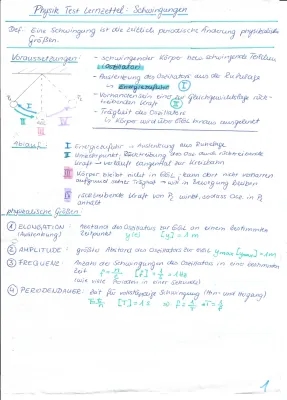 Physik Test Lernzettel: Schwingungen
Def: Eine Schwingung ist die zeitlich periodische Änderung physikalischer
Größen.
Voraussetzungen: - schwingender Körper bzw. schwingende Teilchen
(Oszillator)
- Auslenkung des Oszillators aus der Ruhelage
→ Energiezufuhr I
- Vorhandensein einer zur Gleichgewichtslage rück-
treibenden Kraft II
- Trägheit des Oszillators
↳ Körper wird über hinaus ausgelenkt
Ablauf: I Energiezufuhr → Auslenkung aus Ruhelage
II rücktreibende
Kraft → verläuft tangential zur Kreisbahn
III Körper bleibt nicht in, kann dort nicht verharren
aufgrund seiner Trägheit → in Bewegung bleiben
rücktreibende Kraft von P2 wirkt, sodass Osz. in P2
anhält
physikalische Größen:
① ELONGATION: Abstand des Oszillators zur GGL an einem bestimmten
(Auslenkung) Zeitpunkt y(t) [y] = 1 m
② AMPLITUDE: größter Abstand des Oszillators zur GGL ymax [ymax] = 1m
③ FREQUENZ: Anzahl der Schwingungen des Oszillators in einer bestimmten
Zeit f = n/t [f] = 1/s = 1 Hz
(wie viele Perioden in einer Sekunde)
④ PERIODENDAUER: Zeit für vollständige Schwingung (Hin- und Hergang)
[T] = 1 s ⇒ f = 1/T → T = 1/f
1